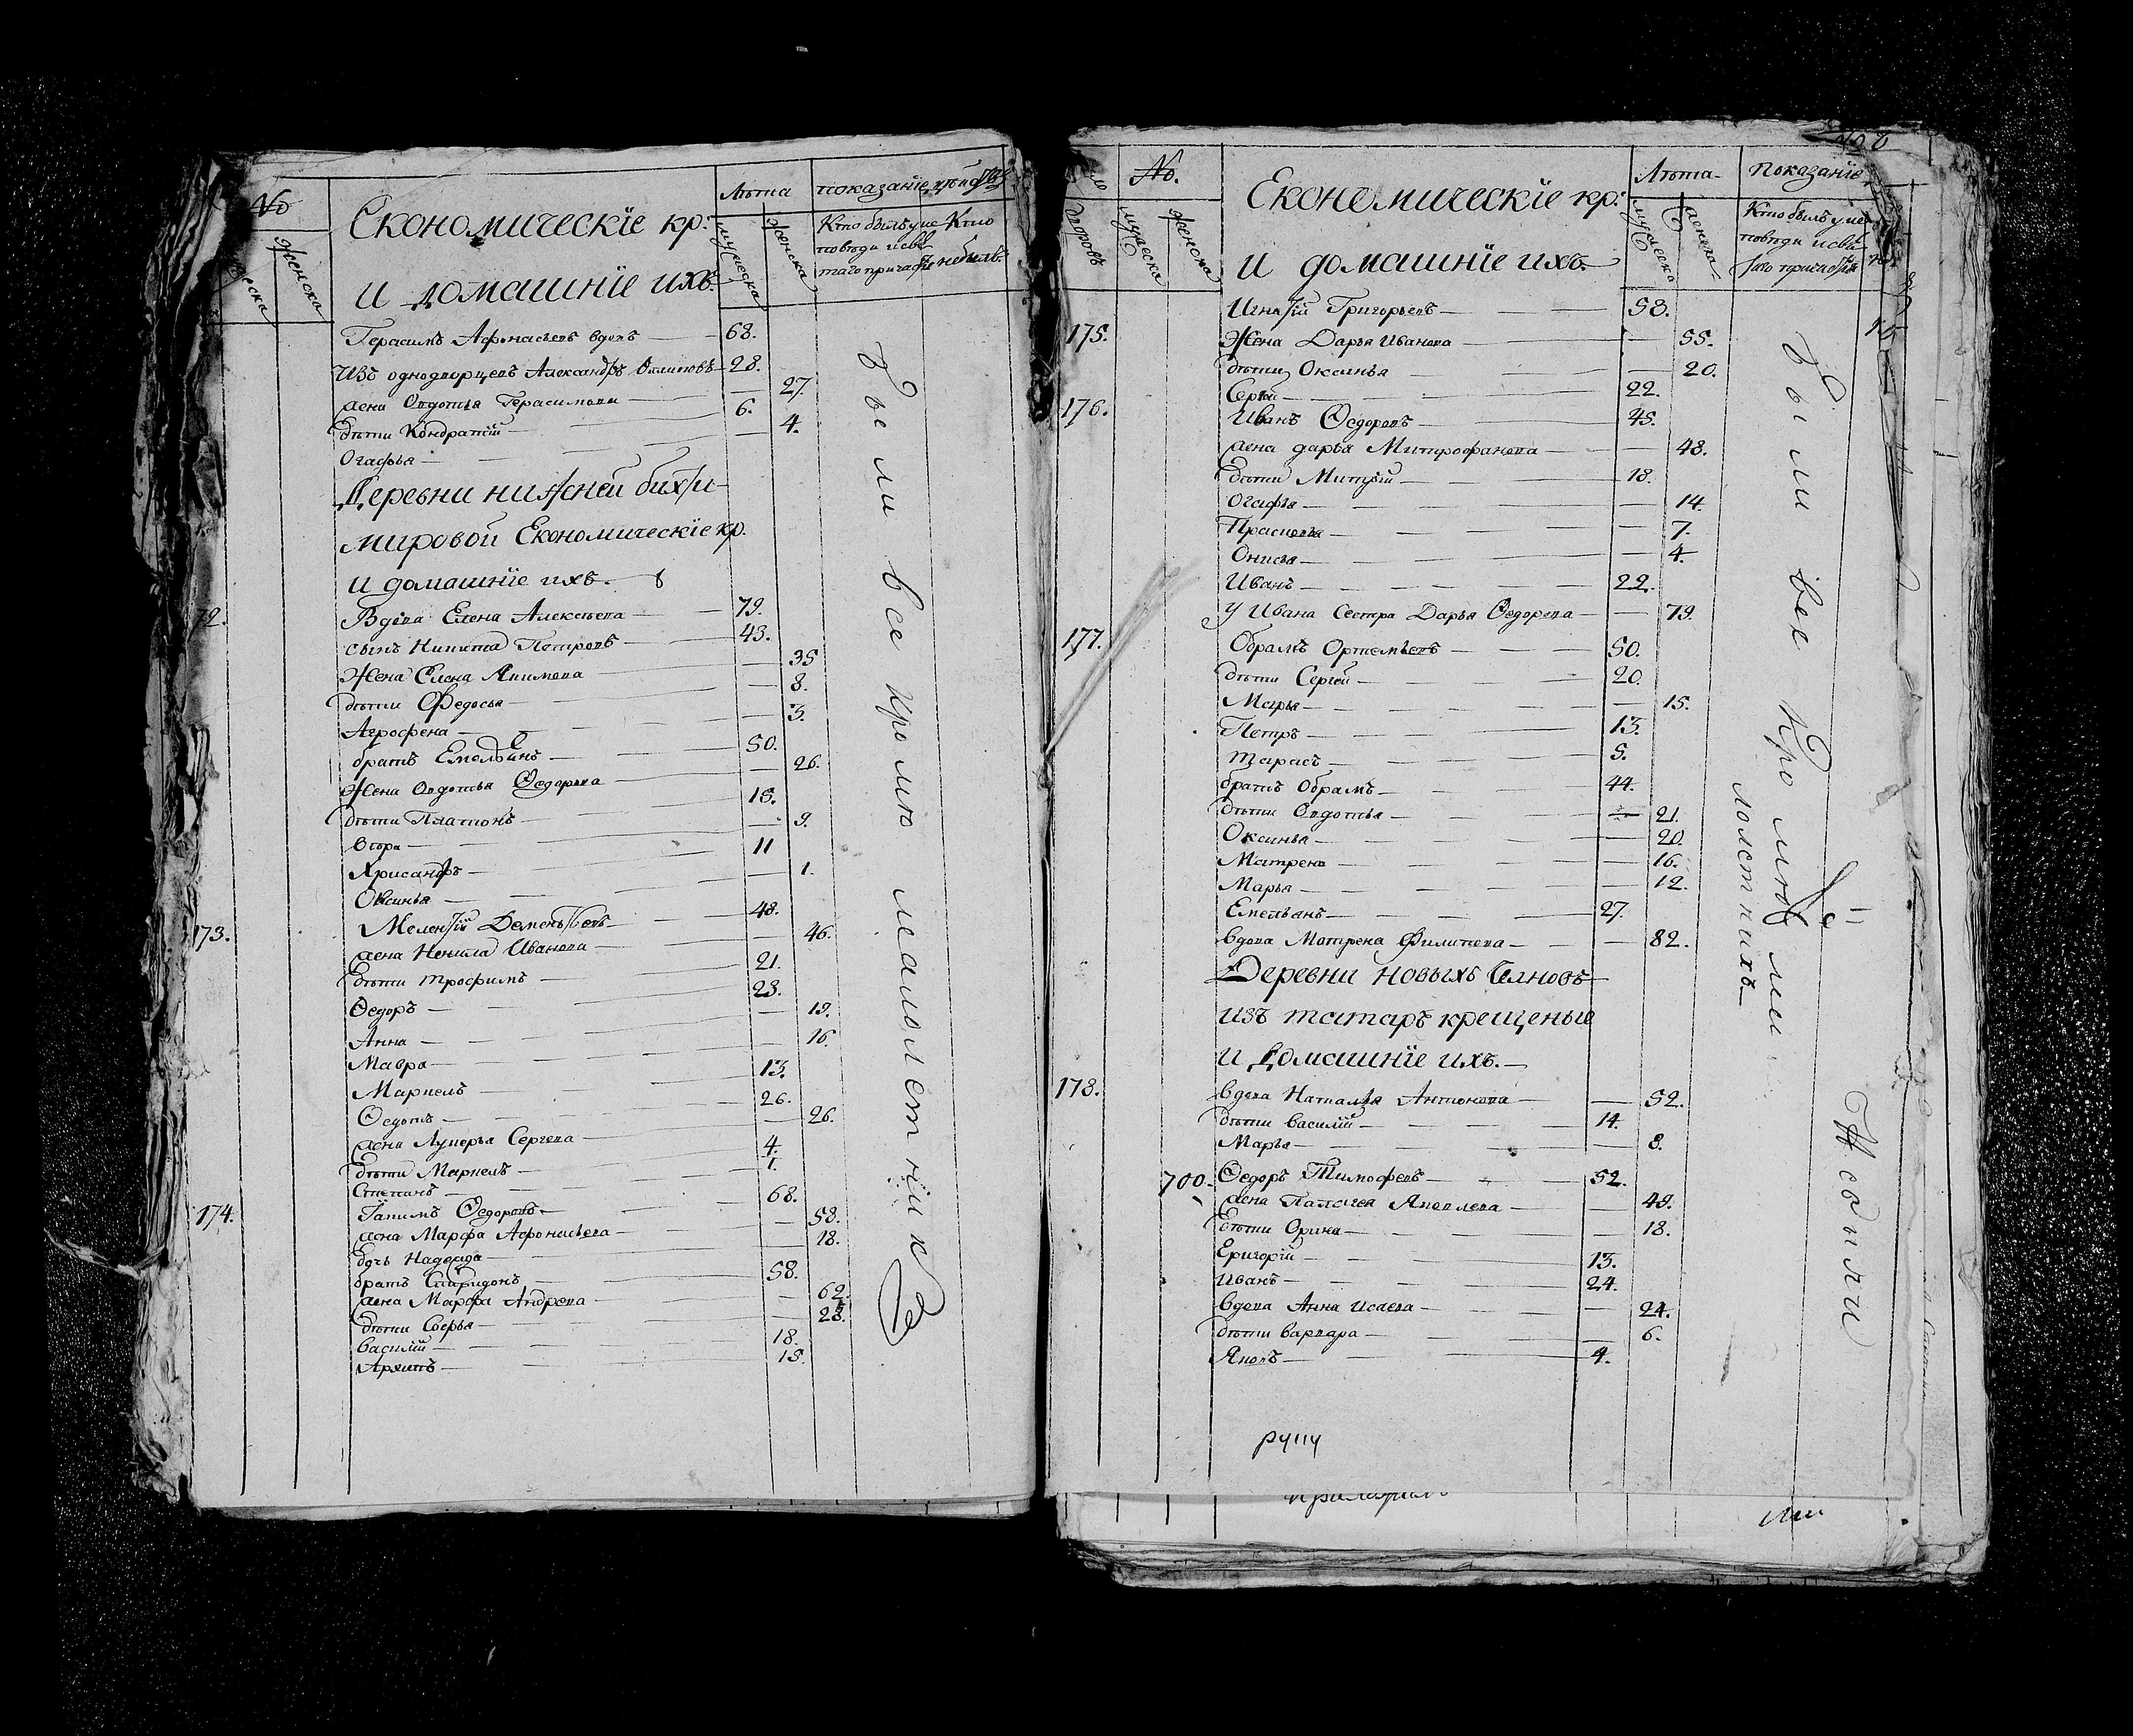 No
женска
Економическїе кр:
и домашнїе ихъ.
Лѣта
мужеска
женска
показанїе
Кто былъ у ис
повѣди и свя
таго причас
Кто
не былъ
Герасимъ Афонасьевъ вдовъ — 68.
Изъ однодворцевъ Александръ — 28.
жена Овдотья Герасимова — 27.
дѣти Кондратїй — 6.
Огафья — 4.
Деревни нижней
мировой Економическїе кр.
и домашнїе ихъ.
72. Вдова Елена Алексѣева — 79.
сынъ Никита Петровъ — 43.
Жена Елена Якимова — 35
дѣти Федосья — 8.
Агрофена — 3.
братъ Емельянъ — 50.
Жена Овдотья Ѳедорова — 26.
дѣти Платонъ — 15.
9.
Хрисанфъ — 11
Оксинья — 1.
173. Мелентїй — 48.
жена Ненила Иванова — 46.
дѣти Трофимъ — 21.
Ѳедоръ — 23.
Анна — 19.
Мавра — 16.
Маркелъ — 13.
Ѳедотъ — 26.
жена Лукерья Сергева — 26.
дѣти Маркелъ — 4.
Степанъ — 1.
174. Якимъ Ѳедоровъ — 68.
жена Марфа Афонасьева — 58.
дочь Надежда — 18.
братъ Спиридонъ — 58.
жена Марфа Андрева — 62.
дѣти Софья — 23.
Василїй — 18.
Архипъ — 15.
были все кромѣ малолетних
No.
дворовъ
мужеска
женска
Економическїе кр:
и домашнїе ихъ.
Лѣта
мужеска
женска
Показанїе
Кто былъ у ис
повѣди и свя
таго причас
175. Игнатїй Григорьевъ — 58.
Жена Дарья Иванова — 55.
дѣти Оксинья — 20.
Сергѣй — 22.
176. Иванъ Ѳедоровъ — 45.
жена дарья Митрофанова — 48.
дѣти — 18.
Огафья — 14.
Прасковья — 7.
Онисья — 4
Иванъ — 22.
у Ивана сестра Дарья Ѳедорова — 79.
177. Обрамъ Ортемьевъ — 50.
дѣти Сергей — 20.
Марья — 15.
Петръ — 13.
Тарасъ — 5.
братъ Обрамъ — 44.
дѣти Овдотья — 21.
Оксинья — 20.
Матрена — 16.
Марья — 12.
Емельянъ — 27.
вдова Матрена Филипова — 82.
Деревни новыхъ
изъ татаръ крещеные
и домашнїе ихъ.
178. вдова Наталья Антонова — 52.
дѣти василїй — 14.
Марья — 8.
700. Ѳедоръ Тимофевъ — 52.
жена Палагея Яковлева — 49.
дѣти Орина — 18.
Григорїй — 13.
Иванъ — 24.
вдова Анна Исаева — 24.
дѣти варвара — 6.
Яковъ — 4.
были все кромѣ ма
лолетнихъ